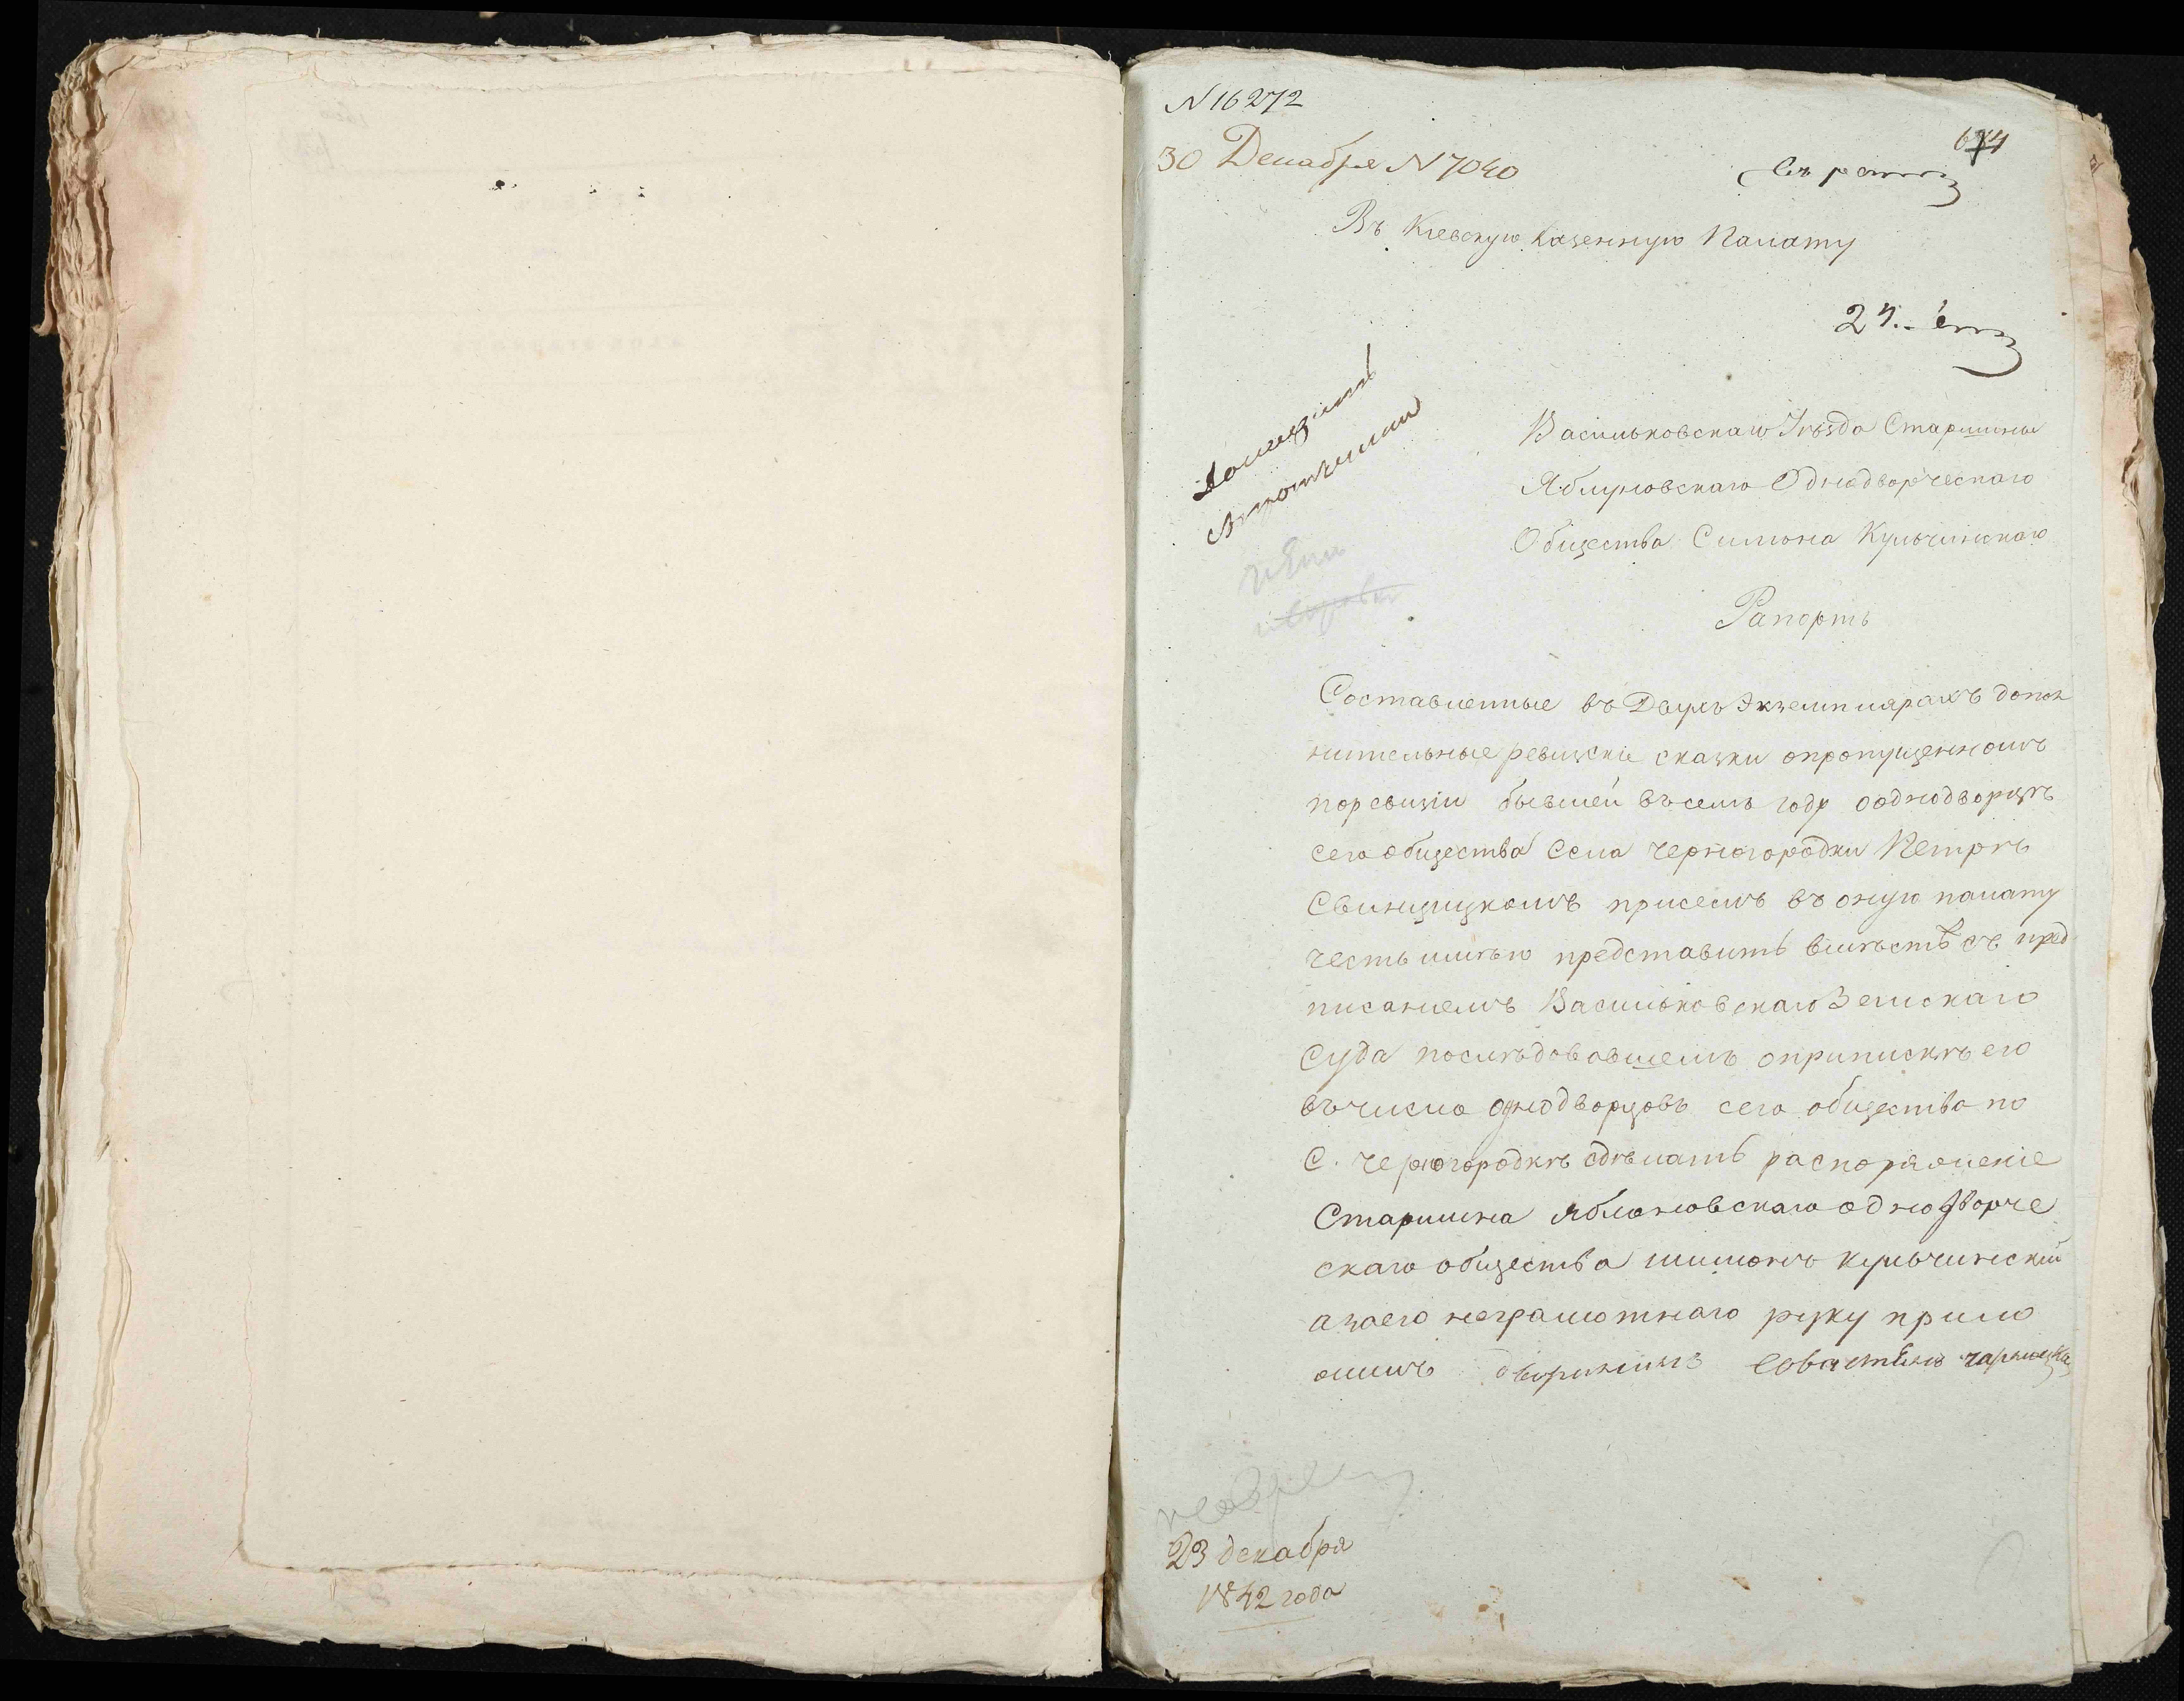 N 16272
674
30 Декабря N 7040
Въ Кіевскую Казенную Палату
Васильковскаго Уѣзда Старшины
Яблуновскаго Однодворческаго
Общества Симона Кульчинскаго
Рапортъ
Составленные въ Двухъ Экземплярахъ допол
нительные ревизскіе сказки опропущенномъ
поревизіи бывшей въ семъ году однодворцѣ
сего общества Села Черногородки Петрѣ
Свинцицкомъ присемъ въ оную палату
честь имѣю представить вмѣстѣ съ пред
писаніемъ Васильковскаго Земскаго
Суда послѣдовавшемъ оприпискѣ его
въ число однодворцовъ сего общества по
С. Черногородкѣ сдѣлать распоряженіе
Старшина Яблоновскаго однодворче
скаго общества шимонъ кульчинскій
азаего неграмотнаго руку прило
жилъ дворянинъ
23 декабря
1842 года